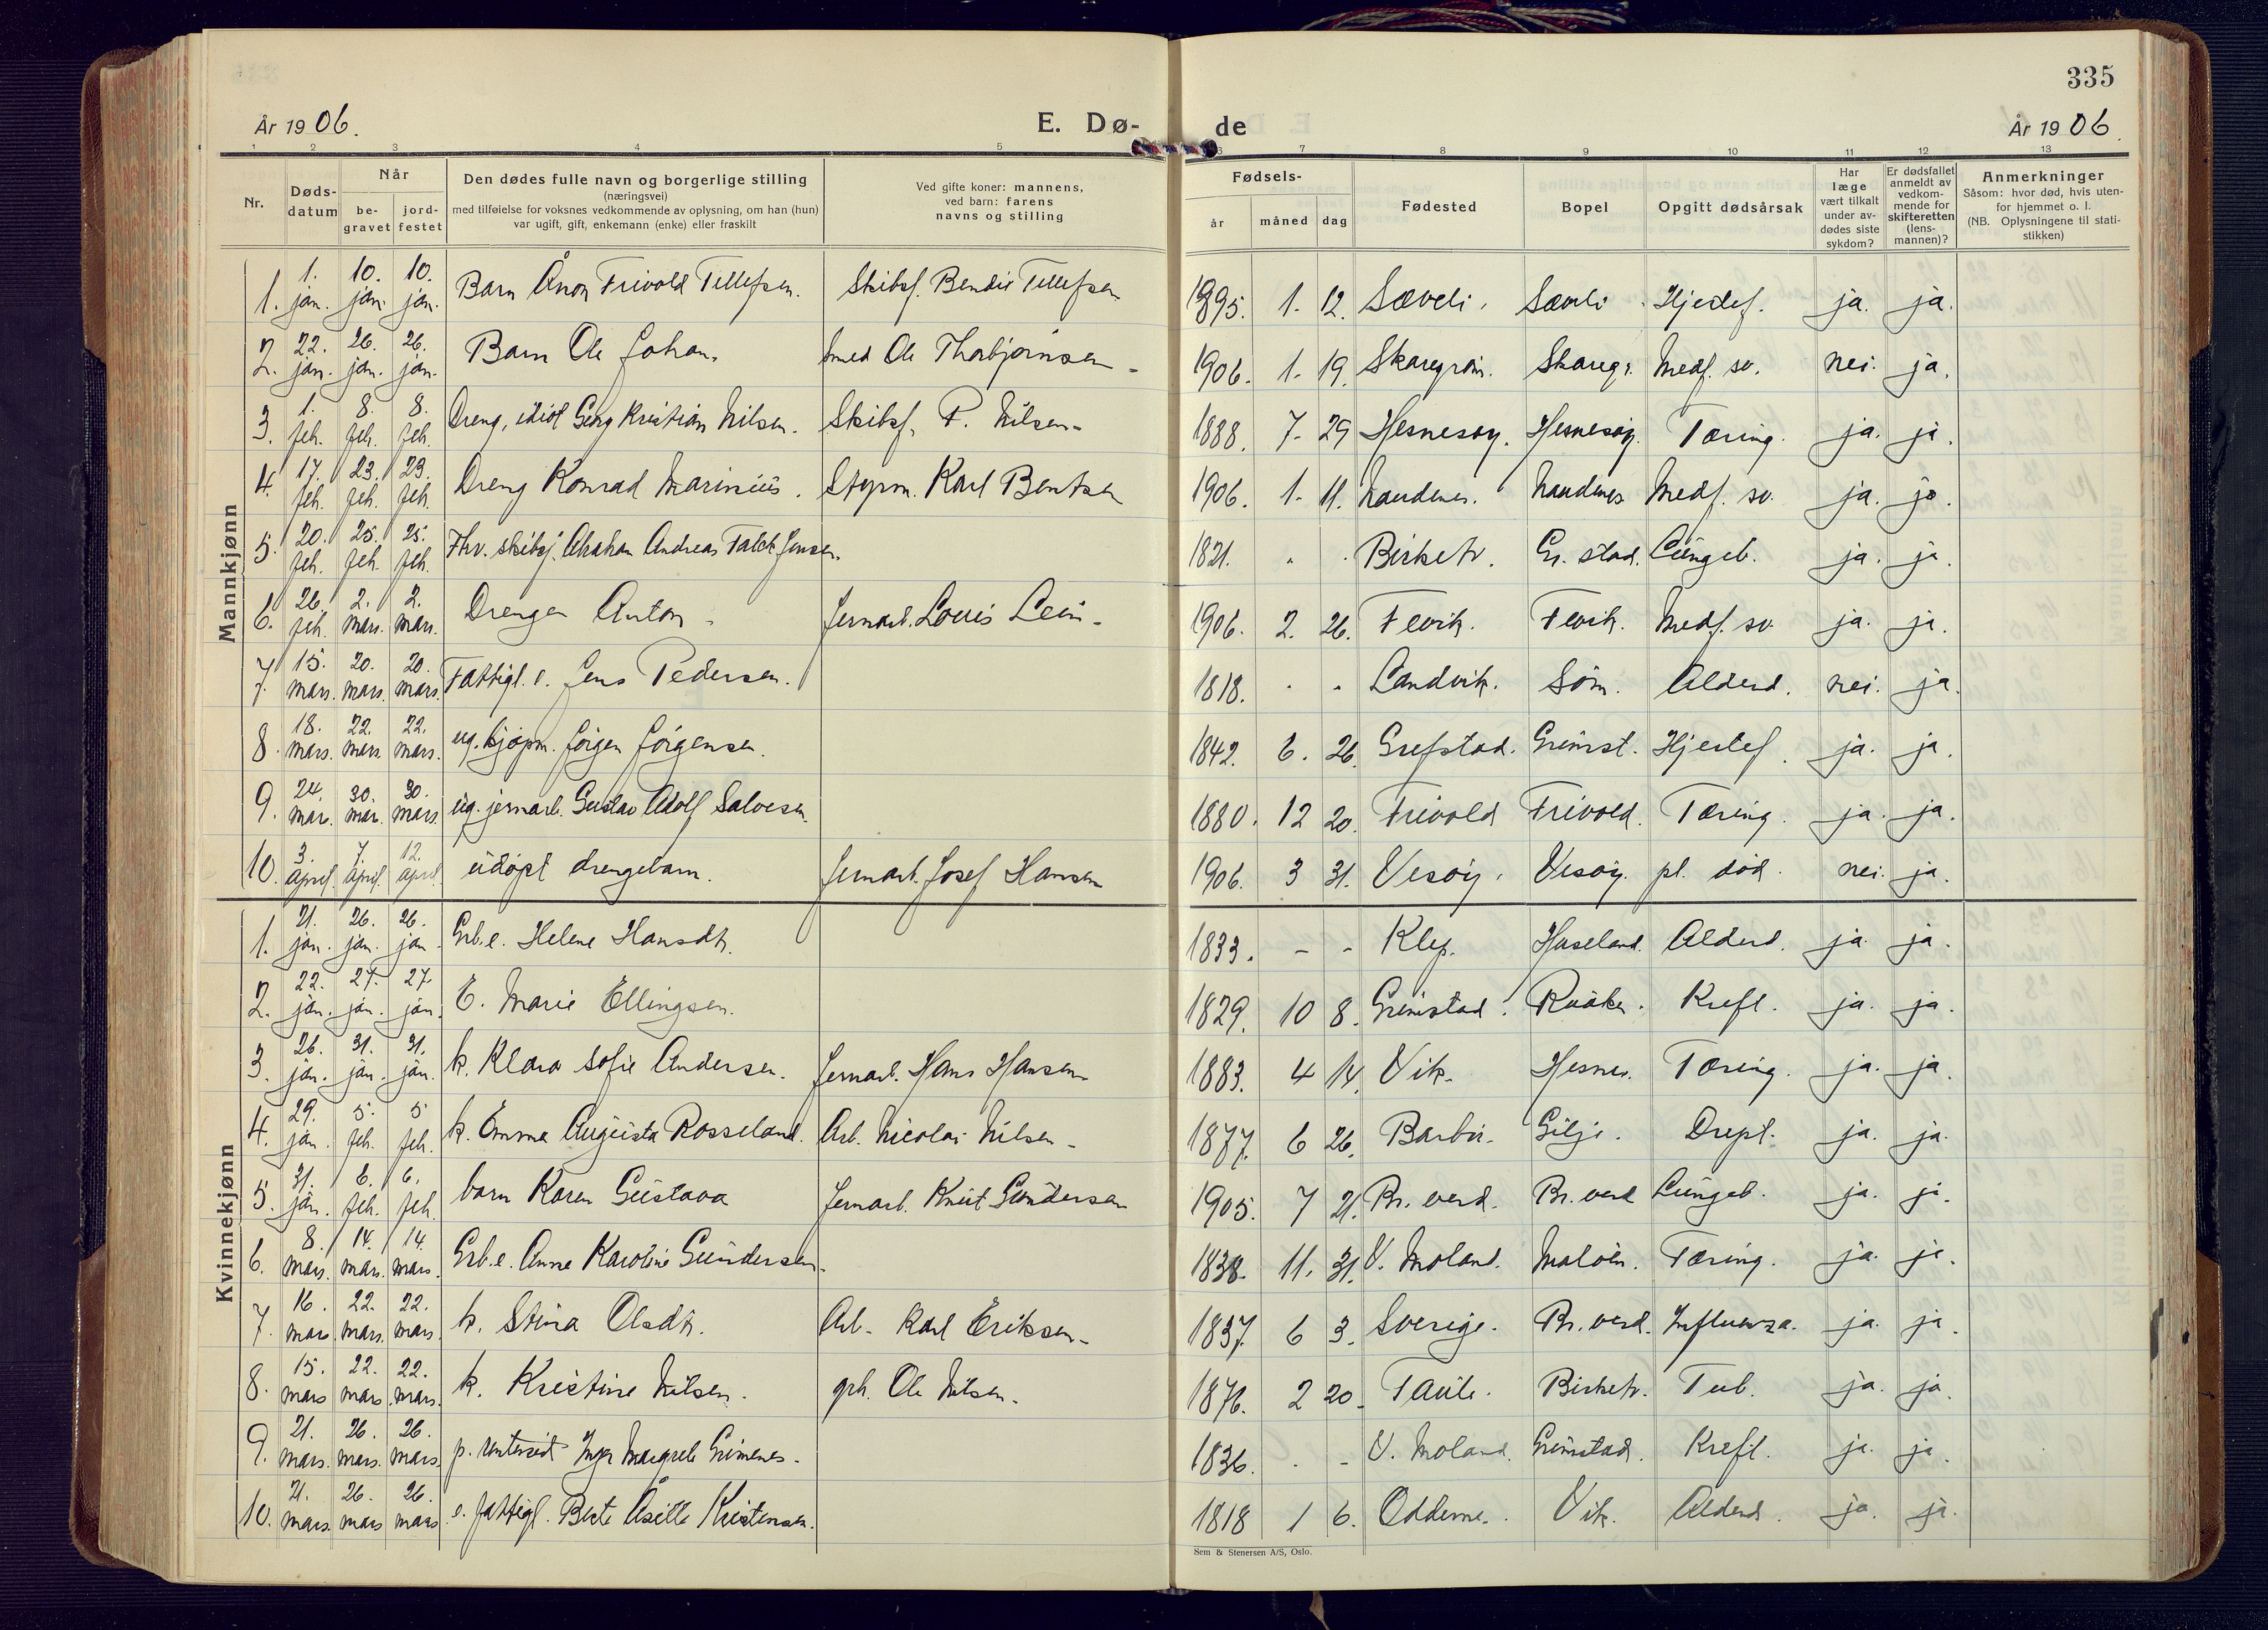 335
År 1906.
E. Dø-
de
År 1906.
1 2 3 4 5 6 7 8 9 10 11 12 13
Nr.
Døds-
datum
Når
be-
gravet
jord-
festet
Den dødes fulle navn og borgerlige stilling
(næringsvei)
med tilføielse for voksnes vedkommende av oplysning, om han (hun)
var ugift, gift, enkemann (enke) eller fraskilt
Ved gifte koner: mannens,
ved barn: farens
navns og stilling
Fødsels-
år
måned
dag
Fødested
Bopel
Opgitt dødsårsak
Har
læge
vært tilkalt
under av-
dødes siste
sykdom?
Er dødsfallet
anmeldt av
vedkom-
mende for
skifteretten
(lens-
mannen)?
Anmerkninger
Såsom: hvor død, hvis uten-
for hjemmet o. l.
(NB. Oplysningene til stati-
stikken)
Mannkjønn
1. 1. jan. 10. jan. 10. jan. BarnÅnon Frivold Tellefsen. Skibsf. Bendix Tellefsen 1895. 1. 12. Sæveli. Sæveli Hjertef. ja. ja.
2. 22. jan. 26. jan. 26. jan. Barn Ole Johan. Smed Ole Thorbjørnsen 1906. 1. 19. Skaregrøm. Skaregr. Medf. sv. nei. ja.
3. 1. feb. 8. feb. 8. feb. Dreng, idiot Georg Kristian Nilsen. Skibsf. P. Nilsen 1888. 7. 29 Hesnesøy. Hesnesøy. Tæring. ja. ja.
4. 17. feb. 23. feb. 23. feb. Dreng Konrad Marinius. Styrm. Karl Bentsen 1906. 1. 11. Naudenes. Naudenes Medf. sv. ja. ja
5. 20. feb. 25. feb. 25. feb. Fhv. skibsf. Abraham Andreas Falck Jensen. 1821. Birketv. Gr. stad. Lungeb. ja. ja.
6. 26. feb. 2. mars. 2. mars. Drengen Anton Jernarb. Louis Lein 1906. 2. 26. Fevik. Fevik. Medf. sv. ja. ja.
7. 15. mars. 20. mars. 20. mars. Fattigl. e. Jens Pedersen. 1818. Landvik. Søm. Alderd. nei. ja.
8. 18. mars. 22. mars 22. mars. ug. kjøpm. Jørgen Jørgensen. 1842. 6. 26. Grefstad. Grimst. Hjertef. ja. ja.
9. 24. mar. 30. mar. 30. mars. ug. jernarb. Gustav Adolf Salvesen. 1880. 12 20. Frivold Frivold. Tæring. ja. ja.
10. 3. april. 7. april. 12. april. udøpt drengebarn. Jernarb. Josef Hansen 1906. 3 31. Vesøy. Vesøy. pl. død. nei. ja.
Kvinnekjønn
1. 21. jan. 26. jan. 26. jan. Grb.e. Helene Hansdt. 1833. - - Klep. Huseland. Alderd. ja. ja.
2. 22. jan. 27. jan. 27. jan. E. Marie Ellingsen. 1829. 10 8. Grimstad. Krefl. ja. ja.
3. 26. jan. 31. jan. 31. jan. k. Klara Sofie Andersen. Jernarb. Hans Hansen 1883. 4 14. Vik. Hesnes. Tæring. ja. ja.
4. 29. jan. 5. feb. 5 feb. k. Emma Augusta Rosseland. Arb. Nicolai Nilsen 1877. 6 26. Barbu. Gilje. Drept. ja. ja.
5. 31. jan. 6. feb. 6. feb. barn Karen Gustava Jernarb. Knut Gundersen 1905. 7 21. Br. verd. Br. verd Lungeb. ja. ja.
6. 8. mars. 14. mars. 14. mars. Grb.e. Anne Karoline Gundersen. 1838. 11. 31. V. Moland. Maløen. Tæring. ja. ja.
7. 16. mars. 22. mars. 22. mars. k. Stina Olsdt. Arb. Karl Eriksen 1837. 6 3. Sverige. Br. verd. Influenza. ja. ja.
8. 15. mars 22. mars 22. mars. k. Kristine Nilsen. grb. Ole Nilsen. 1876. 2 20. Taule. Birketv. Tub. ja. ja.
9. 21. mars. 26. mars. 26. mars. p. Inger Margrete Grimenes. 1836. V. Moland. Grimstad. Krefl. ja. ja.
10. 21. mars. 26. mars 26. mars e. fattigl. Berte Åsille Kristensen. 1818 1 6. Oddernes. Vik. Alderd. ja. ja.
Sem & Stenersen A/S, Oslo.